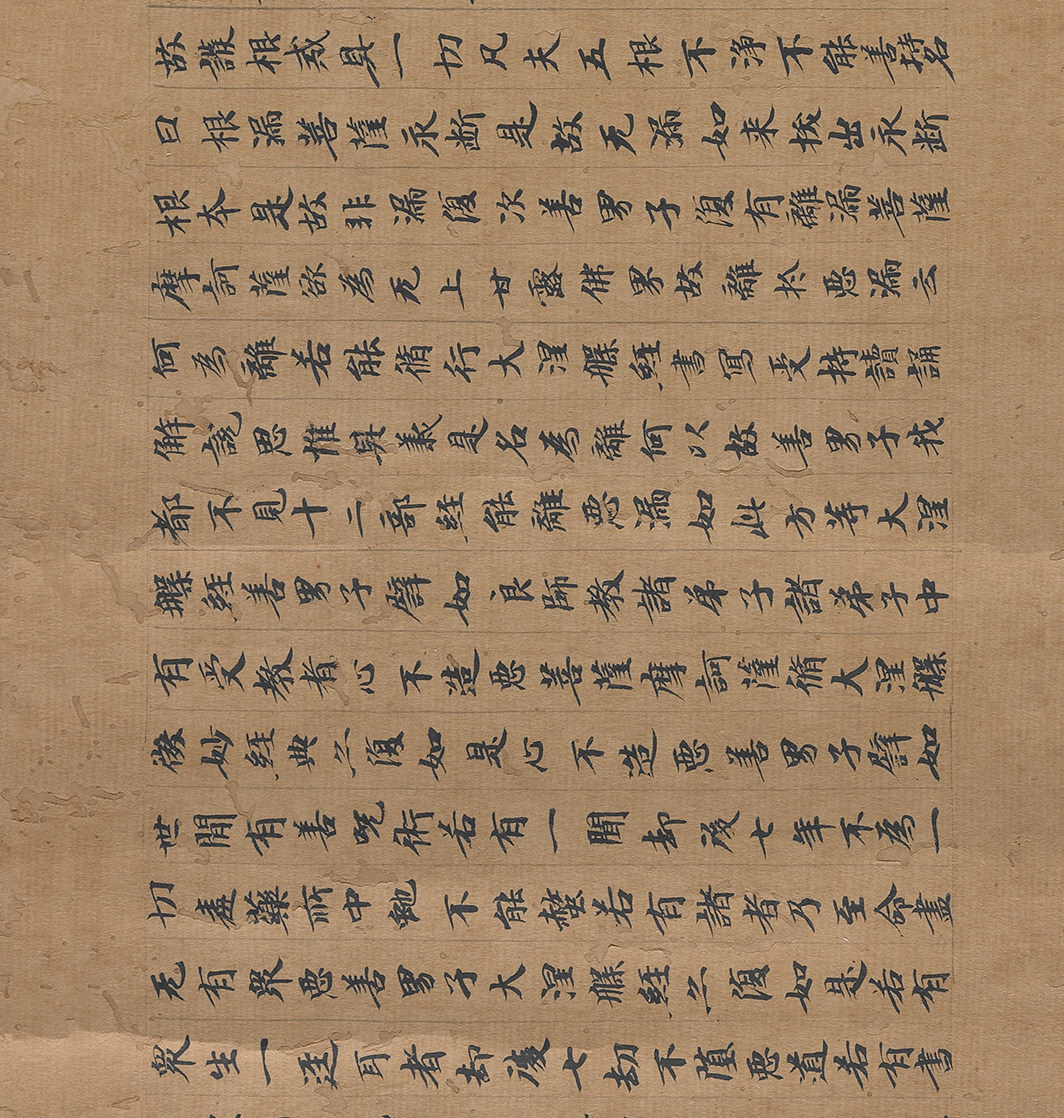 故護根戒具一切凡夫五根不淨不能善持名
曰根漏菩薩永断是故无漏如来拔出永断
根本是故非漏復次善男子復有離漏菩薩
摩訶薩欲為无上甘露佛果故離於惡漏云
何為離若能脩行大涅槃経書寫受持讀誦
解說思惟其義是名為離何以故善男子我
都不見十二部経能離惡漏如此方等大涅
槃経善男子譬如良師教諸弟子諸弟子中
有受教者心不造惡菩薩摩訶薩脩大涅槃
微妙経典亦復如是心不造惡善男子譬如
世間有善呪術若有一聞却後七年不為一
切毒藥所中虵不能螫若有諸者乃至命盡
无有衆惡善男子大涅槃経亦復如是若有
衆生一逕耳者却後七劫不墮惡道若有書